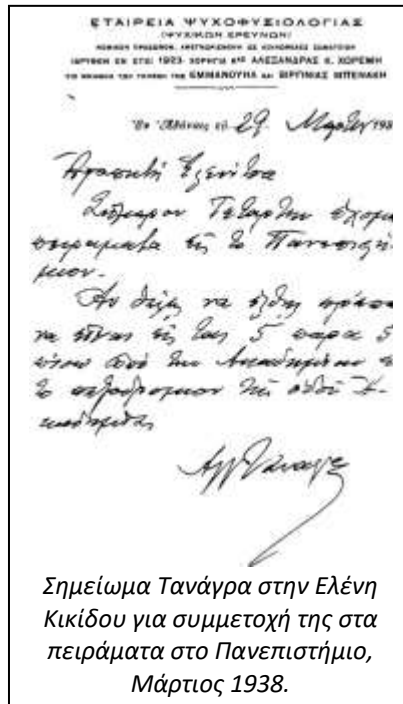 ΕΤΑΙΡΕΙΑ ΨΥΧΟΦΥΣΙΟΛΟΓΙΑΣ
(ΨΥΧΙΚΩΝ ΕΡΕΥΝΩΝ)
ΝΟΜΙΚΟΝ ΠΡΟΣΩΠΟΝ, ΑΝΕΓΝΩΡΙΣΜΕΝΟΝ ΩΣ ΚΟΙΝΩΦΕΛΕΣ ΣΩΜΑΤΕΙΟΝ
ΙΔΡΥΘΕΝ ΕΝ ΕΤΕΙ 1923 ΧΟΡΗΓΙΑ ΑΛΕΞΑΝΔΡΑΣ Κ. ΧΩΡΕΜΗ
ΕΙΣ ΜΝΗΜΗΝ ΤΩΝ ΓΟΝΕΩΝ ΤΗΣ ΕΜΜΑΝΟΥΗΛ ΚΑΙ ΒΙΡΓΙΝΙΑΣ ΜΠΕΝΑΚΗ
Ἐν Ἀθήναις τῇ 29 Μαρτίου 193
Ἀγαπητὴ Ἑλενίτσα
Σήμερον Τετάρτην ἔχομε
πειράματα εἰς τὸ Πανεπιστή-
μιον.
Ἂν θέλῃς νὰ ἔλθῃς πρέπει
νὰ εἶσαι εἰς τὰς 5 παρὰ 5
πίσω ἀπὸ τὴν Ἀκαδημίαν
τὸ πεζοδρόμιον τῆς ὁδοῦ Ἀ-
καδημίας
Ἀγγ Τανάγρα
Σημείωμα Τανάγρα στην Ελένη
Κικίδου για συμμετοχή της στα
πειράματα στο Πανεπιστήμιο,
Μάρτιος 1938.